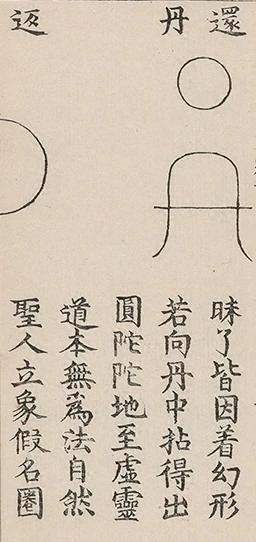 還丹
昧了皆因着幻形
若向丹中拈得出
圓陀陀地至虛靈
返
道本無為法自然
聖人立象假名圈